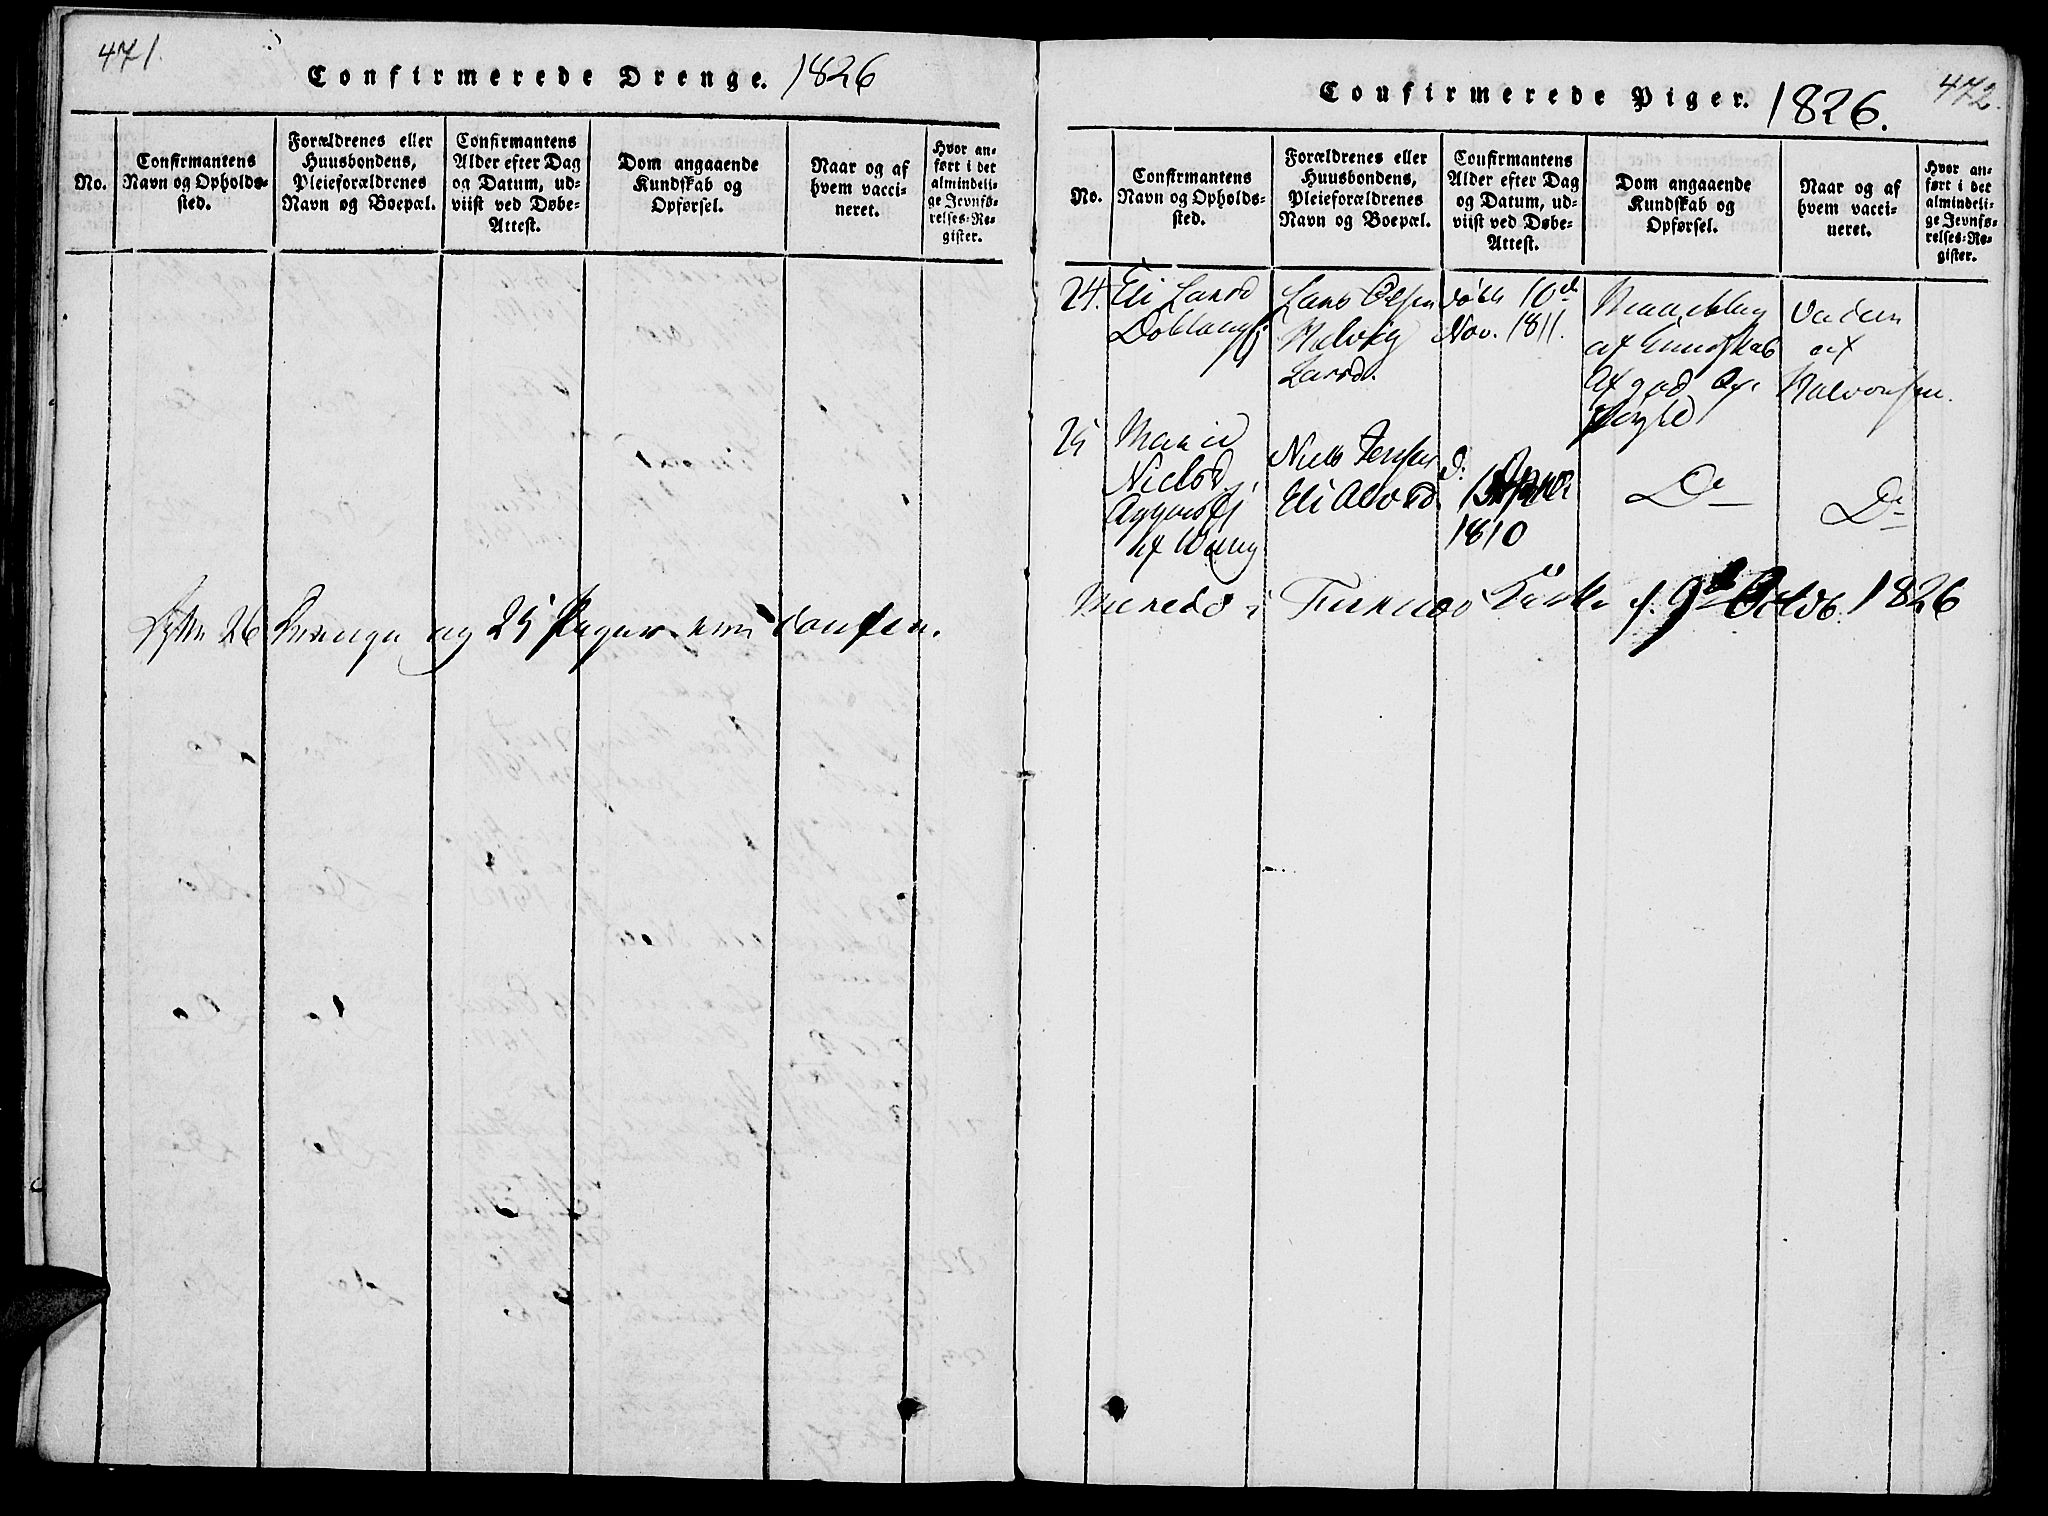 471.
Confirmerede Drenge. 1826
No.
Confirmantens
Navn og Opholds-
sted.
Forældrenes eller
Huusbondens,
Pleieforældrenes
Navn og Boepæl.
Confirmantens
Alder efter Dag
og Datum, ud-
viist ved Døbe-
Attest.
Dom angaaende
Kundskab og
Opførsel.
Naar og af
hvem vacci-
neret.
Hvor an-
ført i det
almindeli-
ge Jevnfø-
relses-Re-
gister.
26 Drenge og 25 Piger
472.
Confirmerede Piger. 1826.
No.
Confirmantens
Navn og Opholds-
sted.
Forældrenes eller
Huusbondens,
Pleieforældrenes
Navn og Boepæl.
Confirmantens
Alder efter Dag
og Datum, ud-
viist ved Døbe-
Attest.
Dom angaaende
Kundskab og
Opførsel.
Naar og af
hvem vacci-
neret.
Hvor an-
ført i det
almindeli-
ge Jevnfø-
relses-Re-
gister.
24.
Eli Larsd
Lars Olsen
Larsd.
døbt 10d
Nov. 1811.
af Kundskab
af god Op-
af
Halvorsen.
25
Marie
Nielsd
Niels Jensen
Eli
1810
D°
D°
i Kirke d. 9d Octob. 1826